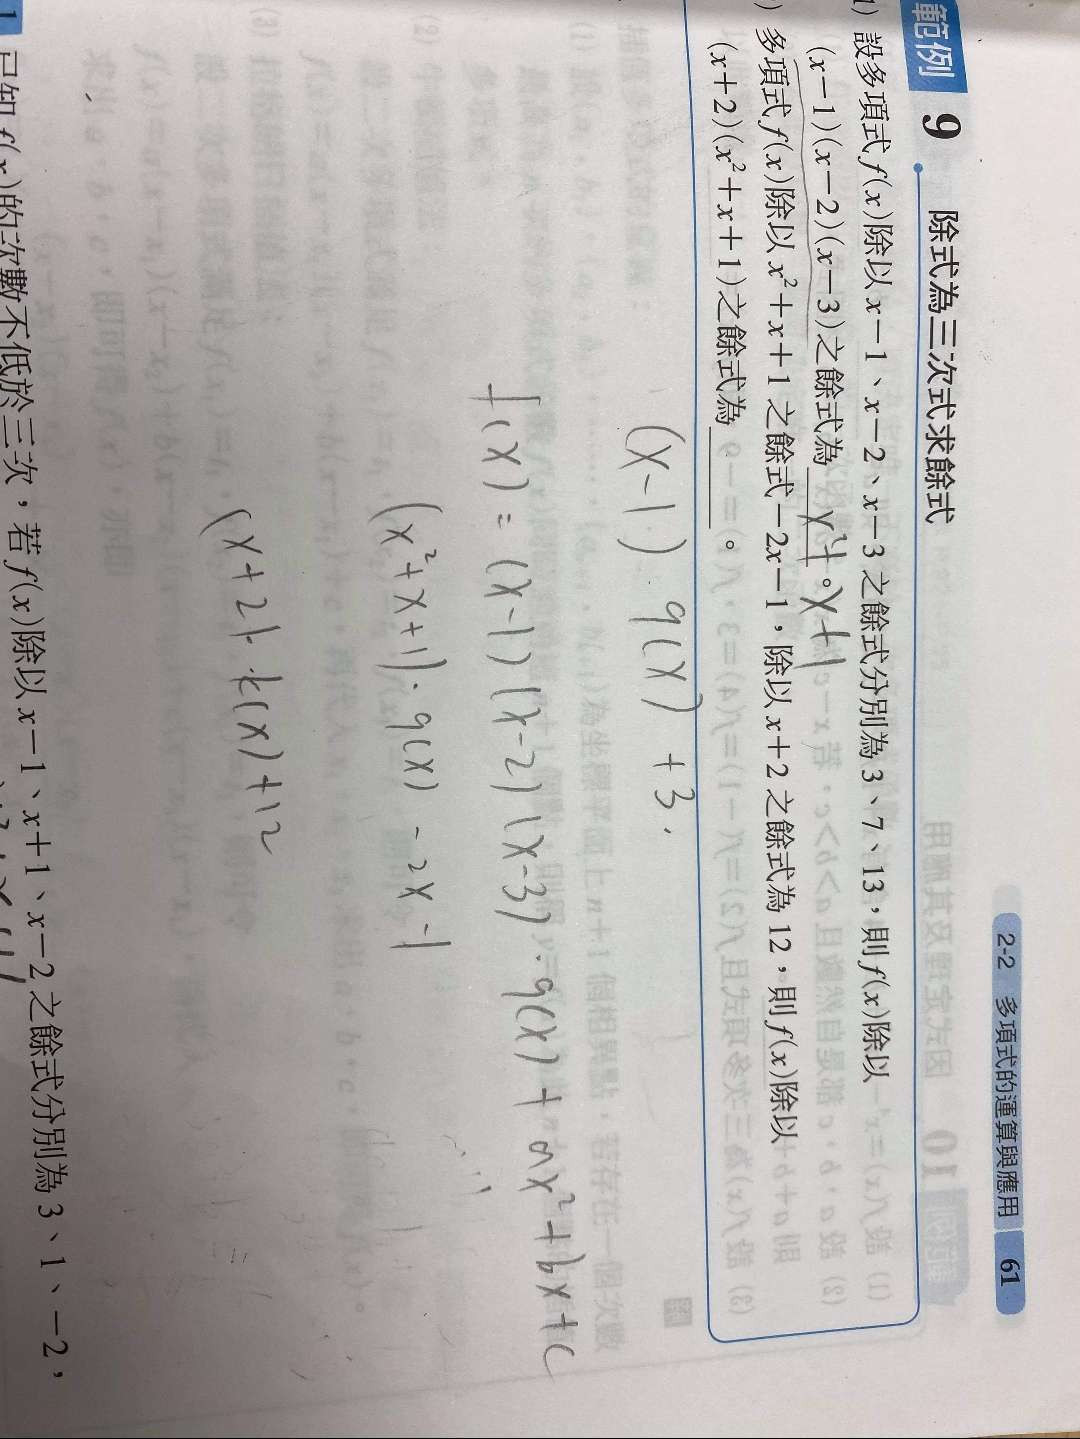 2-2 多項式的運算與應用 61
範例 9 除式為三次式求餘式
1) 設多項式 f(x)除以 x－1、x－2、x－3 之餘式分別為 3、7、13，則 f(x)除以
(x－1)(x－2)(x－3)之餘式為 x²+x+1 。
) 多項式 f(x)除以 x²＋x＋1 之餘式－2x－1，除以 x＋2 之餘式為 12，則 f(x)除以
(x＋2)(x²＋x＋1)之餘式為______。
(x-1) q(x) +3.
f(x) = (x-1)(x-2)(x-3)·q(x)+ax²+bx+c
(x²+x+1)·q(x) -2x-1
(x+2)·k(x)+12
1 已知 f(x)的次數不低於三次，若 f(x)除以 x－1、x＋1、x－2 之餘式分別為 3、1、－2，